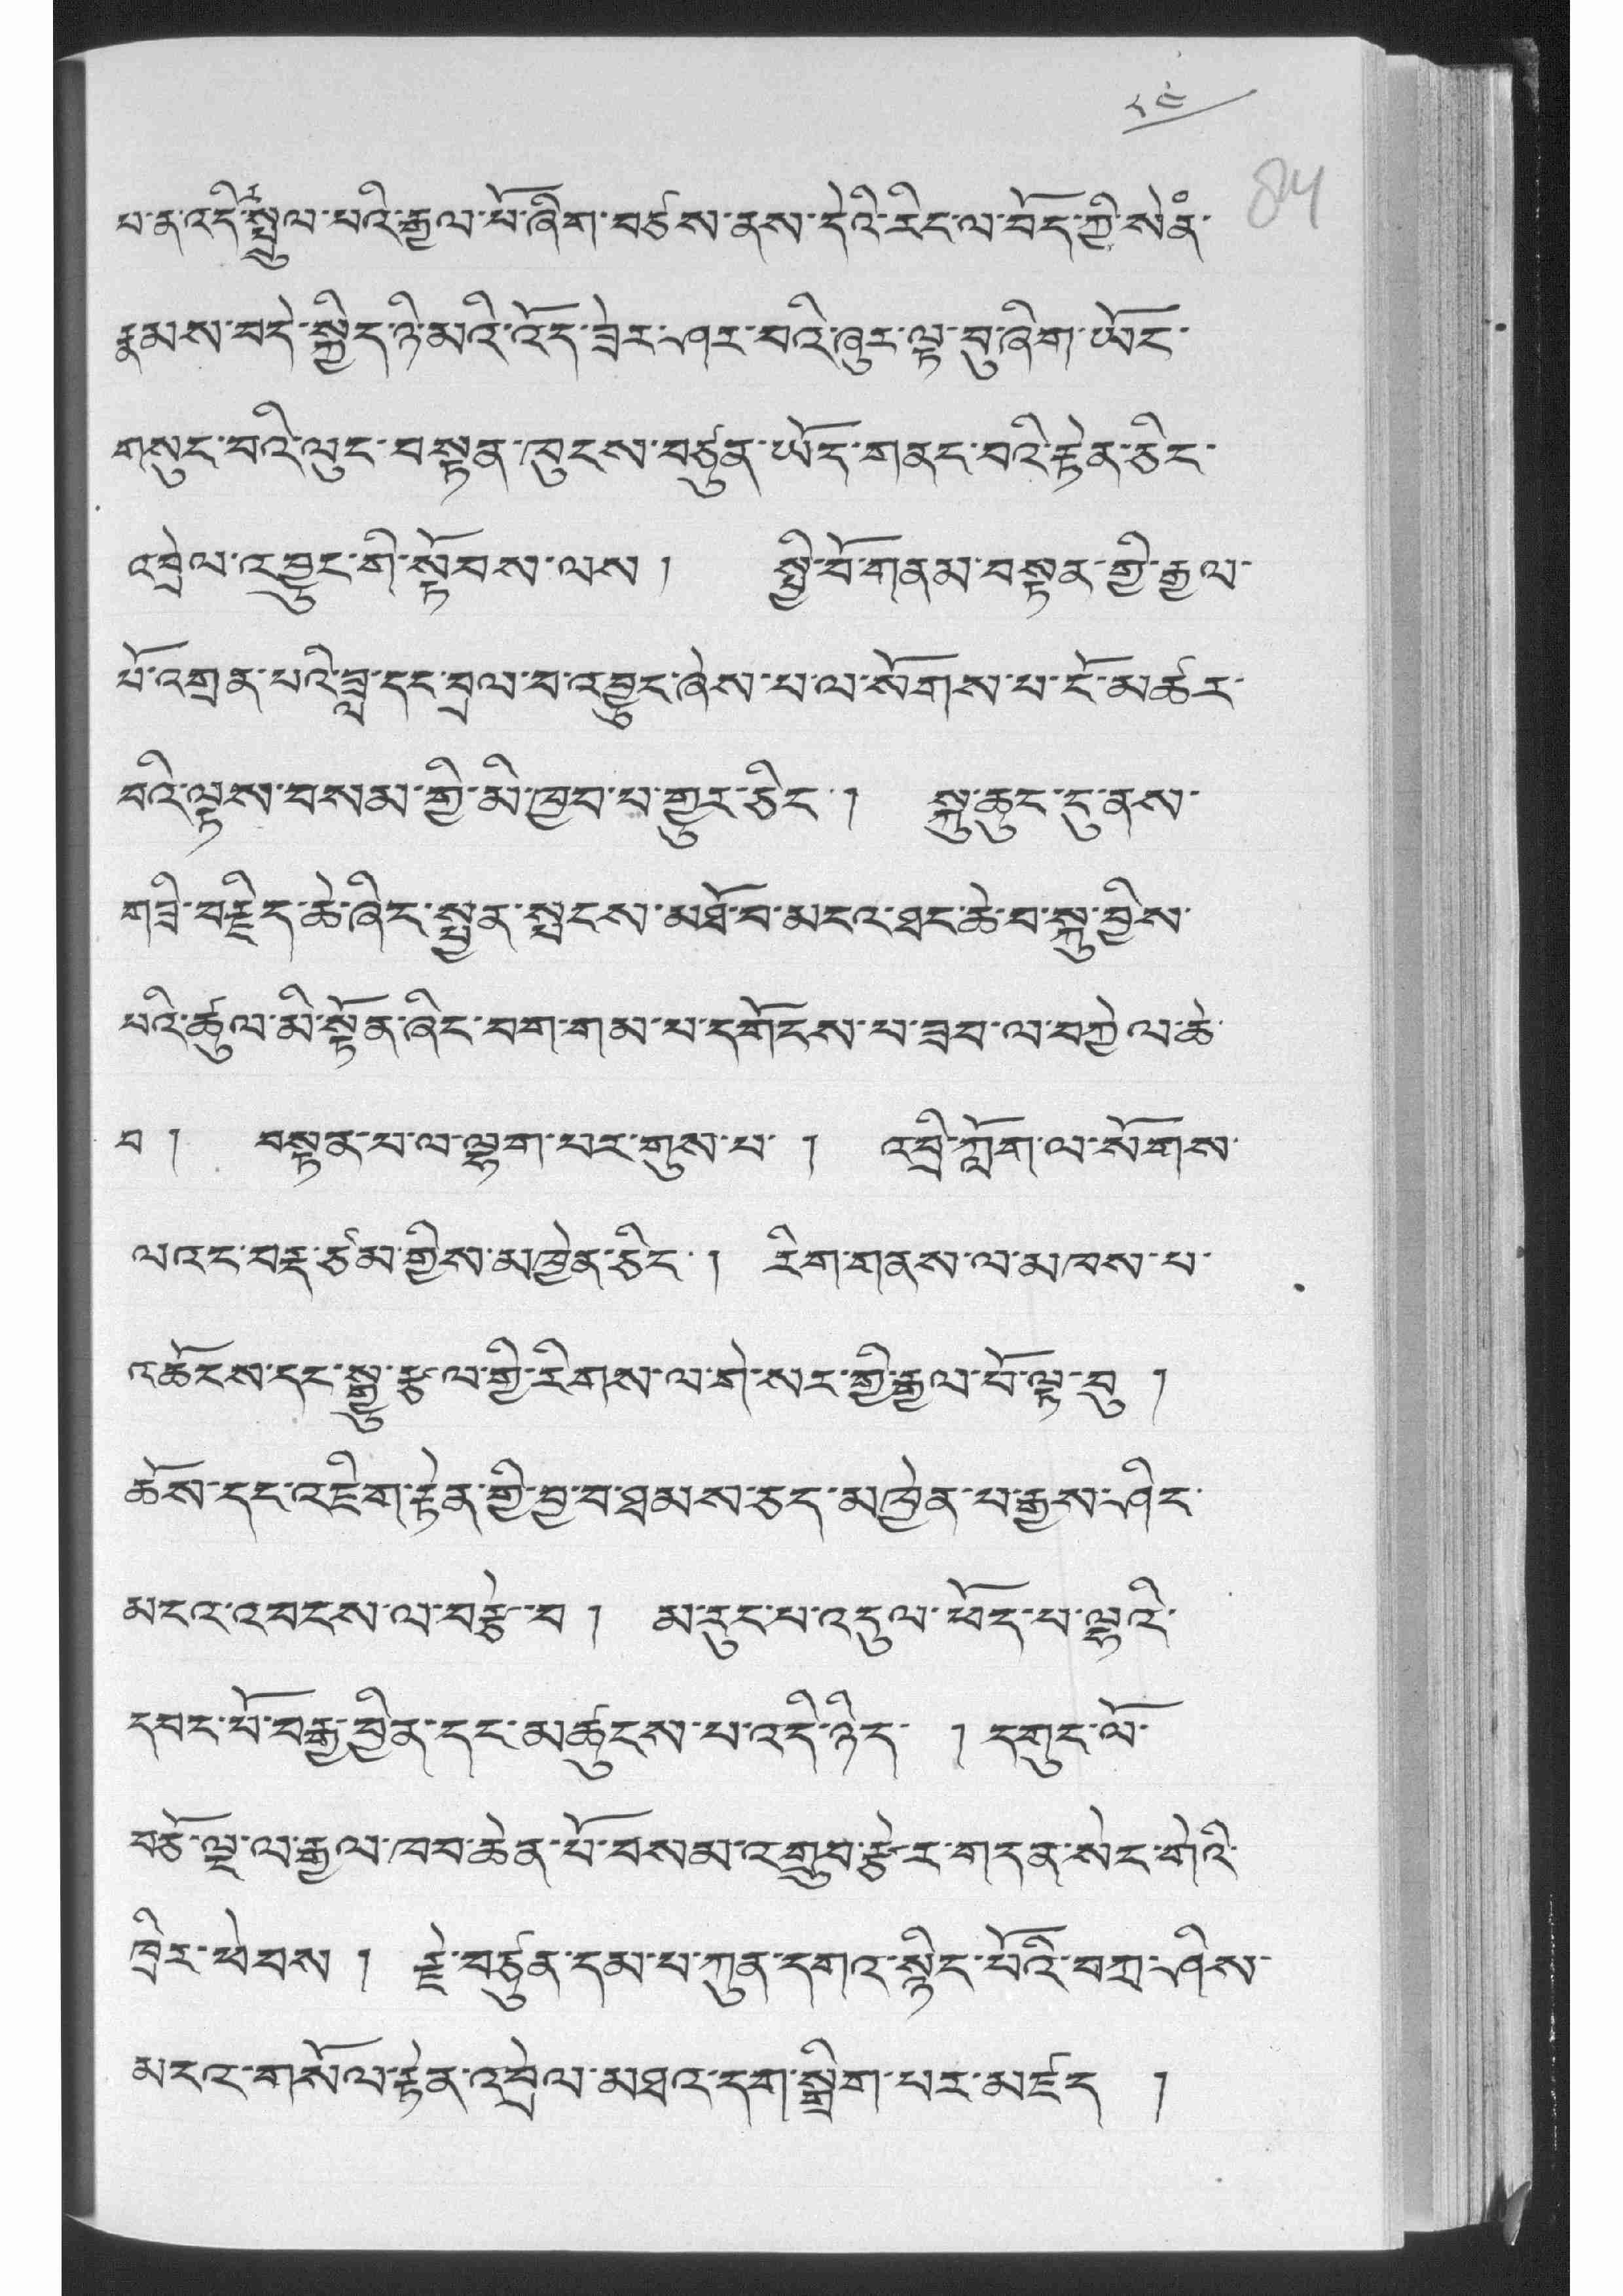 ༨༤
84
པ་ན་འདི་སྤྲུལ་པའི་རྒྱལ་པོ་ཞིག་བཙས་ནས་དེའི་རིང་ལ་བོད་ཀྱི་སེནཾ་
རྣམས་བདེ་སྐྱིད་ཉི་མའི་འོད་ཟེར་ཤར་བའི་ཞུར་ལྟ་བུ་ཞིག་ཡོང་
གསུང་བའི་ལུང་བསྟན་ཁུངས་བཙུན་ཡོད་གནང་བའི་རྟེན་ཅིང་
འབྲེལ་འབྱུང་གི་སྟོབས་ལས། སྤྱི་བོ་གནམ་བསྟན་གྱི་རྒྱལ་
པོ་འགྲན་པའི་ཟླ་དང་བྲལ་བ་འབྱུང་ཞེས་པ་ལ་སོགས་པ་ངོ་མཚར་
བའི་ལྟས་བསམ་གྱི་མི་ཁྱབ་པ་གྱུར་ཅིང་། སྐུ་ཆུང་དུ་ནས་
གཟི་བརྗིད་ཆེ་ཞིང་སྤྱན་སྤངས་མཐོ་བ་མངའ་ཐང་ཆེ་བ་སྐུ་བྱིས་
པའི་ཚུལ་མི་སྟོན་ཞིང་བག་གམ་པ་དགོངས་པ་ཟབ་ལ་བཀྱེལ་ཆེ་
བ། བསྟན་པ་ལ་ལྷག་པར་གུས་པ་། འབྲི་ཀློག་ལ་སོགས་
ལའང་བརྡ་ཙམ་གྱིས་མཁྱེན་ཅིང་། རིག་གནས་ལ་མཁས་པ་
འཆོངས་དང་སྒྱུ་རྩལ་གྱི་རིགས་ལ་གེ་སར་གྱི་རྒྱལ་པོ་ལྟ་བུ།
ཆོས་དང་འཇིག་རྟེན་གྱི་བྱ་བ་ཐམས་ཅད་མཁྱེན་པ་རྒྱས་ཤིང་
མངའ་འབངས་ལ་བརྩེ་བ། མ་རུང་པ་འདུལ་ཕོད་པ་ལྷའི་
དབང་པོ་བརྒྱ་བྱིན་དང་མཚུངས་པ་འདི་ཉིད་། དགུང་ལོ་
བཅོ་ལྔ་ལ་རྒྱལ་ཁབ་ཆེན་པོ་བསམ་འགྲུབ་རྩེར་གདན་སེང་གེའི་
ཁྲིར་ཕེབས། རྗེ་བཙུན་དམ་པ་ཀུན་དགའ་སྙིང་པོའི་བཀྲ་ཤིས་
མངའ་གསོལ་རྟེན་འབྲེལ་མཐའ་དག་སྒྲིག་པར་མཛད།